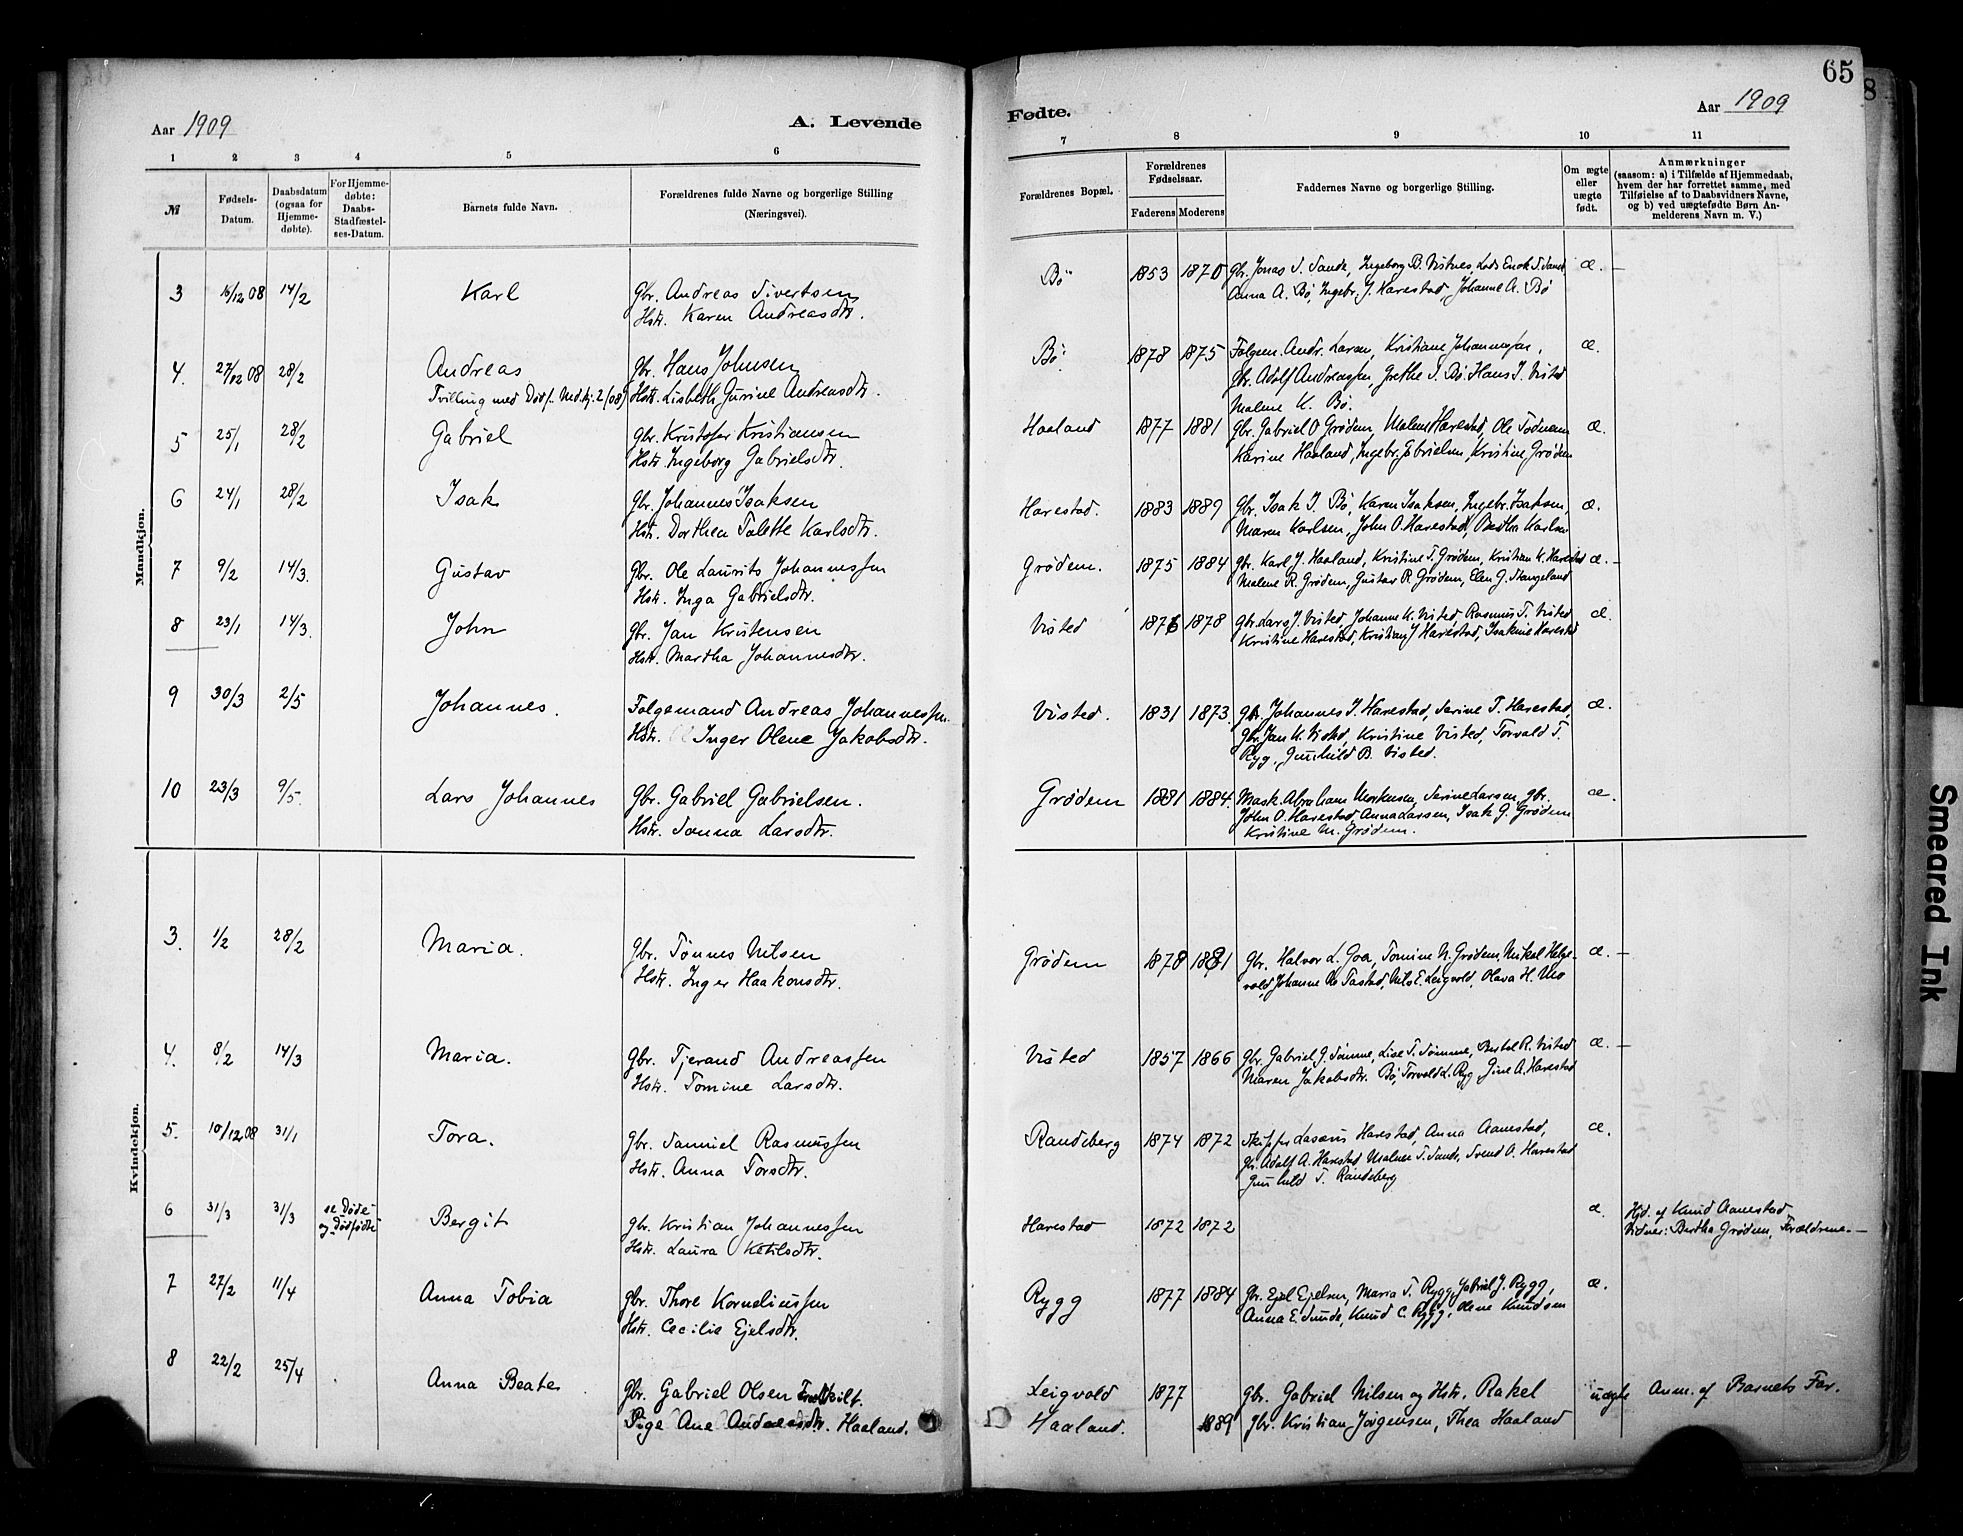 65
8
Aar 1909
A. Levende
Fødte.
Aar 1909
1 2 3 4 5 6
7 8 9 10 11
№
Fødsels-
Datum.
Daabsdatum
(ogsaa for
Hjemme-
døbte).
For Hjemme-
døbte:
Daabs-
Stadfæstel-
ses-Datum.
Barnets fulde Navn.
Forældrenes fulde Navne og borgerlige Stilling
(Næringsvei).
Forældrenes Bopæl.
Forældrenes
Fødselsaar.
Faderens Moderens
Faddernes Navne og borgerlige Stilling.
Om ægte
eller
uægte
født.
Anmærkninger
(saasom: a) i Tilfælde af Hjemmedaab,
hvem der har forrettet samme, med
Tilføielse af to Daabsvidners Navne,
og b) ved uægtefødte Børn An-
melderens Navn m. V.)
Mandkjøn.
3 14/2 Karl Gbr. Andreas Sivertsen
Hstr. Karen Andreasdtr.
Bö 1853 1870 Gbr. Jonas S. Sande, Ingeborg B. Vistnes, Enok S. Sande æ. –
Anna A. Bö, Ingebr. J. Harestad, Johanne A. Bö
4. 27/12 08 28/2 Andreas Gbr. Hans Johnsen
Tvilling med Hstr. Lisbeth Gurine Andreasdtr.
Bö. 1878 1875 Andr. Kristiane æ.
Gbr. Adolf Andreassen, Grethe S. Bö. Hans J. Visted
Malene K. Bö.
5 25/1 28/2 Gabriel Gbr. Kristofer Kristiansen
Hstr. Ingeborg Gabrielsdtr.
Haaland 1877 1881 Gbr. Gabriel O Grödem, Malene Harestad, Ole Todnem æ.
Karine Haaland, Ingebr. Kristine Grödem
6 24/1 28/2 Isak Gbr. Johannes Isaksen
Hstr. Dorthea Talette Karlsdtr.
Harestad. 1883 1889 Gbr. Isak J. Bö, Karen Isaksen, Ingebr. Isaksen, æ.
Maren Karlsen, John O. Harestad, Bertha Karlsen
7 9/2 14/3. Gustav Gbr. Ole Laurits Johannessen
Hstr. Inga Gabrielsdtr.
Grödem. 1875 1884 Gbr. Karl J. Haaland, Kristine T. Grödem, Kristian K. Harestad æ. –
Malene R. Grödem, Gustav R. Grödem, Elen G. Stangeland
8 23/1 14/3. John Gbr. Jan Kristensen
Hstr. Martha Johannesdtr.
Visted 1878 Gbr. Lars J. Visted, Johanne K. Visted, Rasmus T. Visted æ.
Kristine Harestad, Kristian J Harestad, Isakine Harestad
9 30/3 2/5 Johannes. Folgemand Andreas Johannessen
Hstr. Inger Olene Jakobsdtr.
Visted. 1831 1873. Gbr. Johannes J. Harestad, Serine T. Harestad, æ.
Gbr. Jan K. Visted, Kristine Visted, Torvald T.
Ryg, Gunhild B. Visted.
10 23/3 9/5. Lars Johannes Gbr. Gabriel Gabrielsen.
Hstr. Larsdtr.
Grödem 1881 1884. Mask. Abraham Serine Larsen, gbr. æ.
John O. Harestad, Anna Larsen, Isak G. Grödem
Kristine M. Grödem.
Kvindekjøn.
3. 1/2 28/2 Maria. Gbr. Tönnes Nilsen
Hstr. Inger Haakonsdtr.
Grödem 1878 1881 Gbr. Halvor L. Goa, Tomine N. Grödem, Mikal Helge- æ. –
vold, Johanne Tastad, Nils E. Leigvold, Olava H.
4. 8/2 14/3 Maria. Gbr. Tjerand Andreassen
Hstr. Tomine Larsdtr.
Visted 1857 1866 Gbr. Gabriel G. Sömme, Lise T. Sömme, Bertel R. Visted æ. –
Maren Jakobsdtr. Bö, Torvald L. Ryg, Gine A. Harestad
5. 10/12 08 31/1 Tora. Gbr. Samuel Rasmussen
Hstr. Anna Torsdtr.
Randeberg 1874 1872 Skipper Lasarus Harestad, Anna Aanestad, æ.
Gbr. Adolf A. Harestad Malene T. Sande, Svend O. Harestad
Gunhild T. Randeberg
6 31/3 31/3 se Döde-
og Dödfödte Bergit Gbr. Kristian Johannessen
Hstr. Laura Ketilsdtr.
Harestad 1872 1872 æ. Hjd. af Knud Aanestad
Vidner: Bertha Grödem, Forældrene. –
7 27/2 11/4 Anna Tobia Gbr. Thore Korneliussen
Hstr. Cecilie Ejelsdtr.
Rygg 1877 1884 Gbr. Ejel Ejelsen, Maria T. Rygg, Gabriel J. Rygg, æ.
Anna E. Sunde, Knud C. Rygg, Olene Knudsen
8 22/2 25/4 Anna Beate Gbr. Gabriel Olsen Fraskilt.
Pige Ane Andreasdtr. Haaland.
Leigvold 1877 Gbr. Gabriel Nilsen og Hstr. Rakel uægte Anm. af Barnets Far.
Haaland. 1889 Gbr. Kristian Jörgensen, Thea Haaland
Smeared Ink